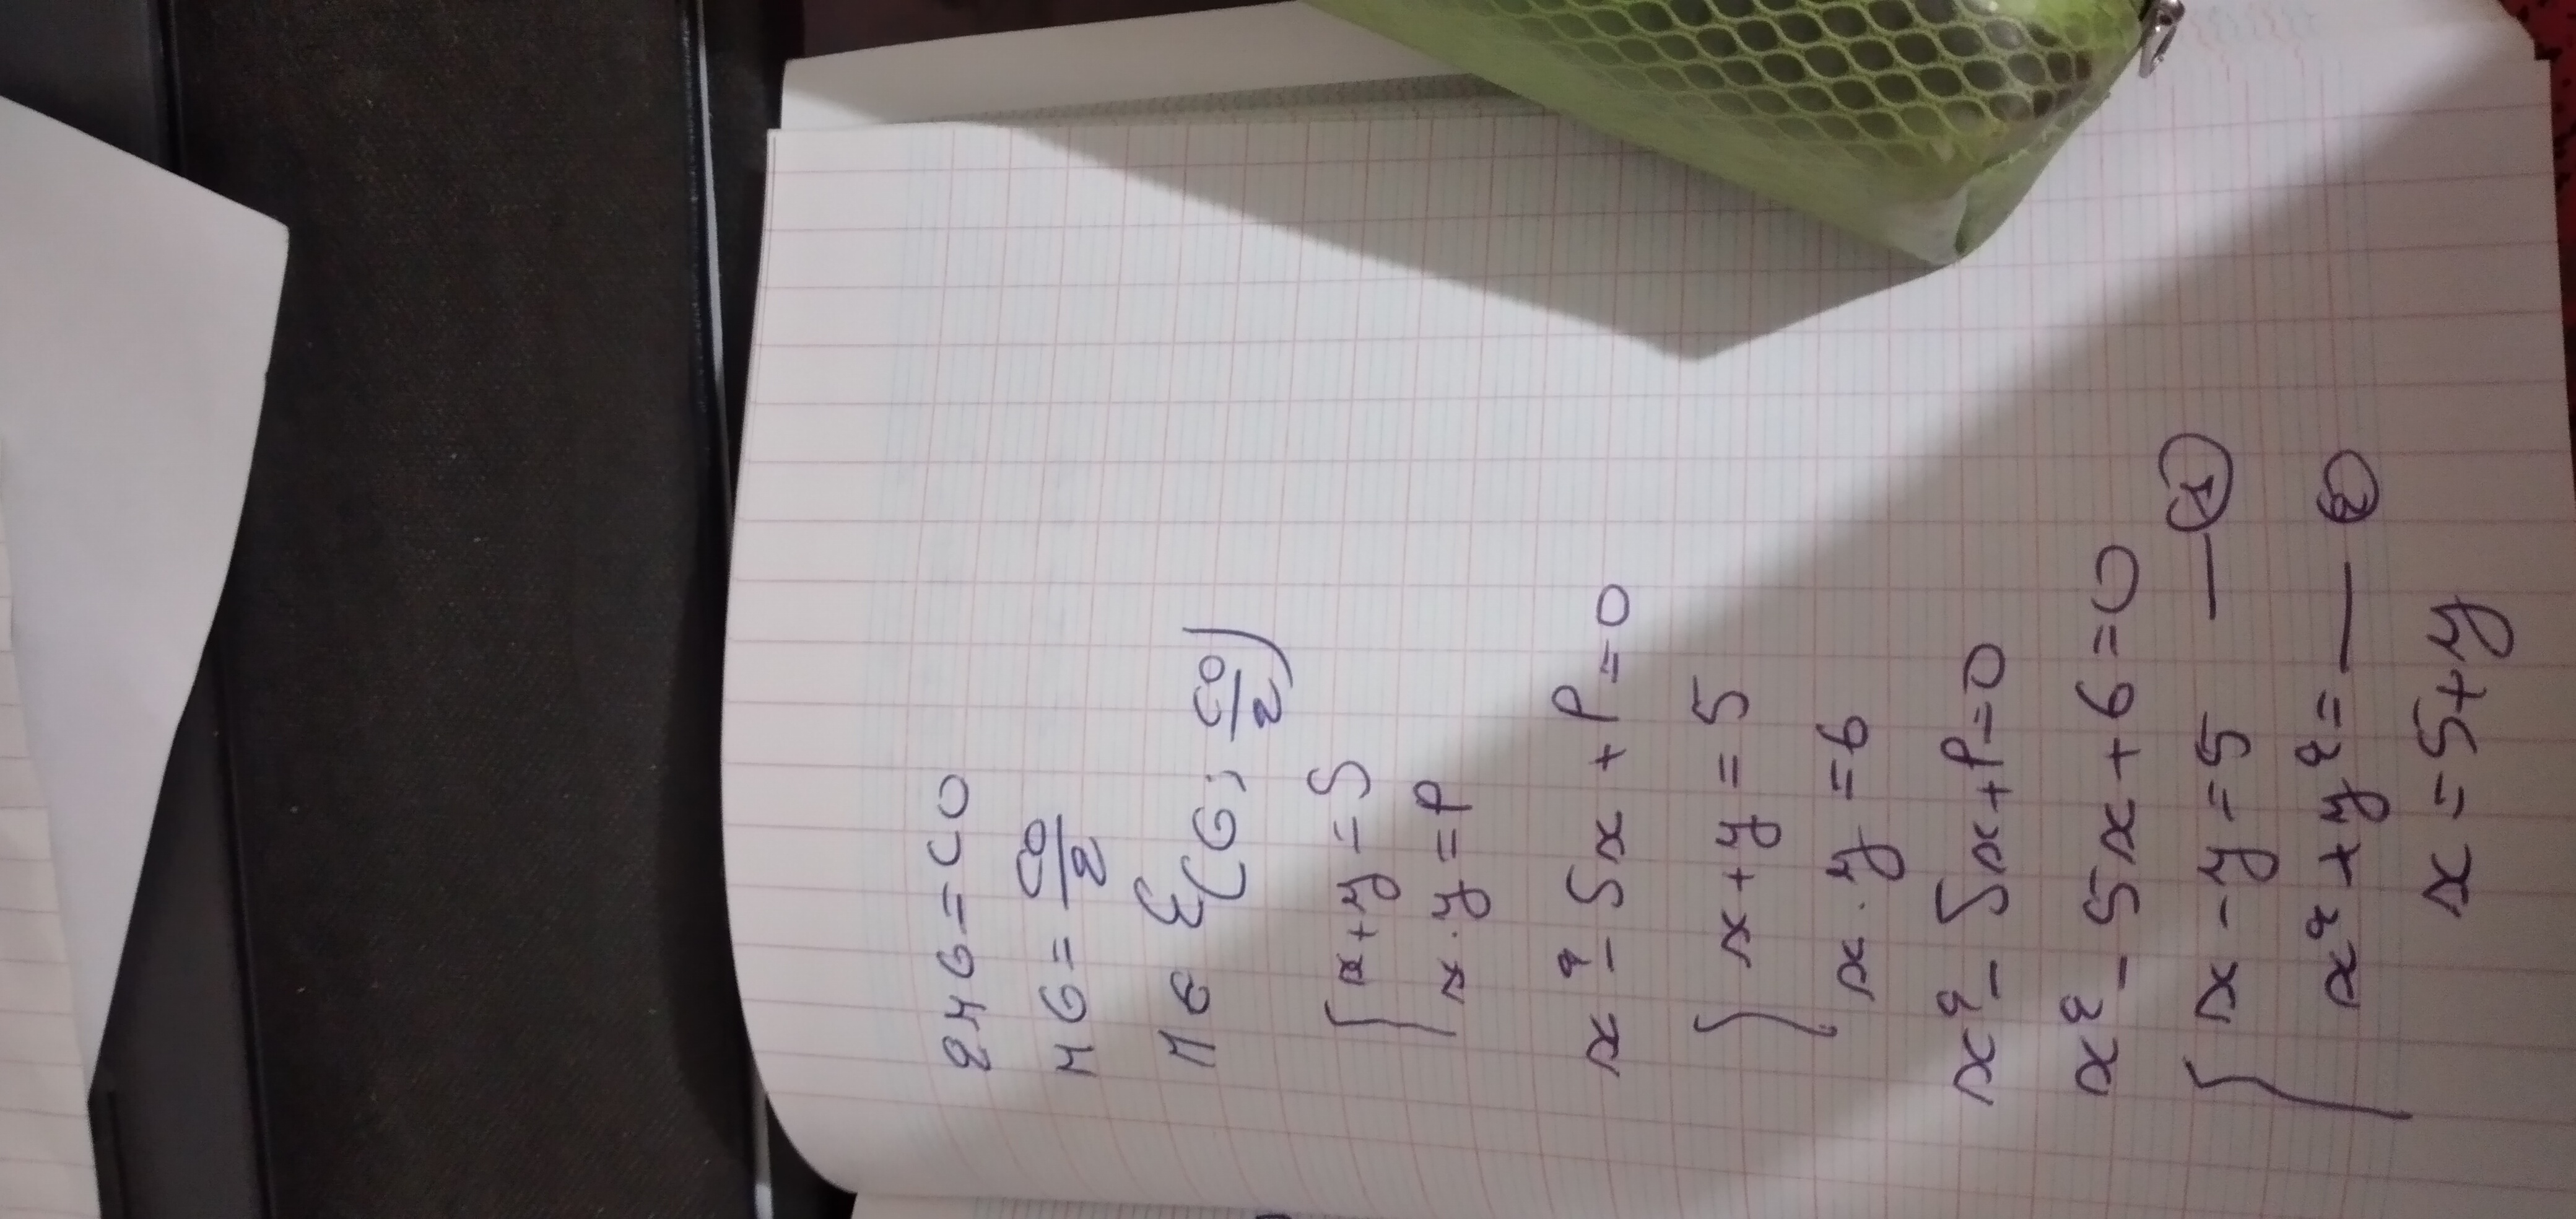 2MG=CO
MG=CO/2
M∈ξ(G; CO/2)
{x+y=S
x.y=P
x²-Sx+P=0
{x+y=5
x.y=6
x²-Sx+P=0
x²-5x+6=0
{x-y=5 — ①
x²+y²= — ②
x=5+y